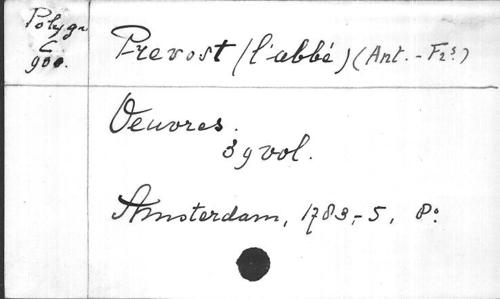 Polygr
C
900.
Prevost (l'abbé) (Ant. - Frs.)
Oeuvres.
39 vol.
Amsterdam, 1783-5, 8º